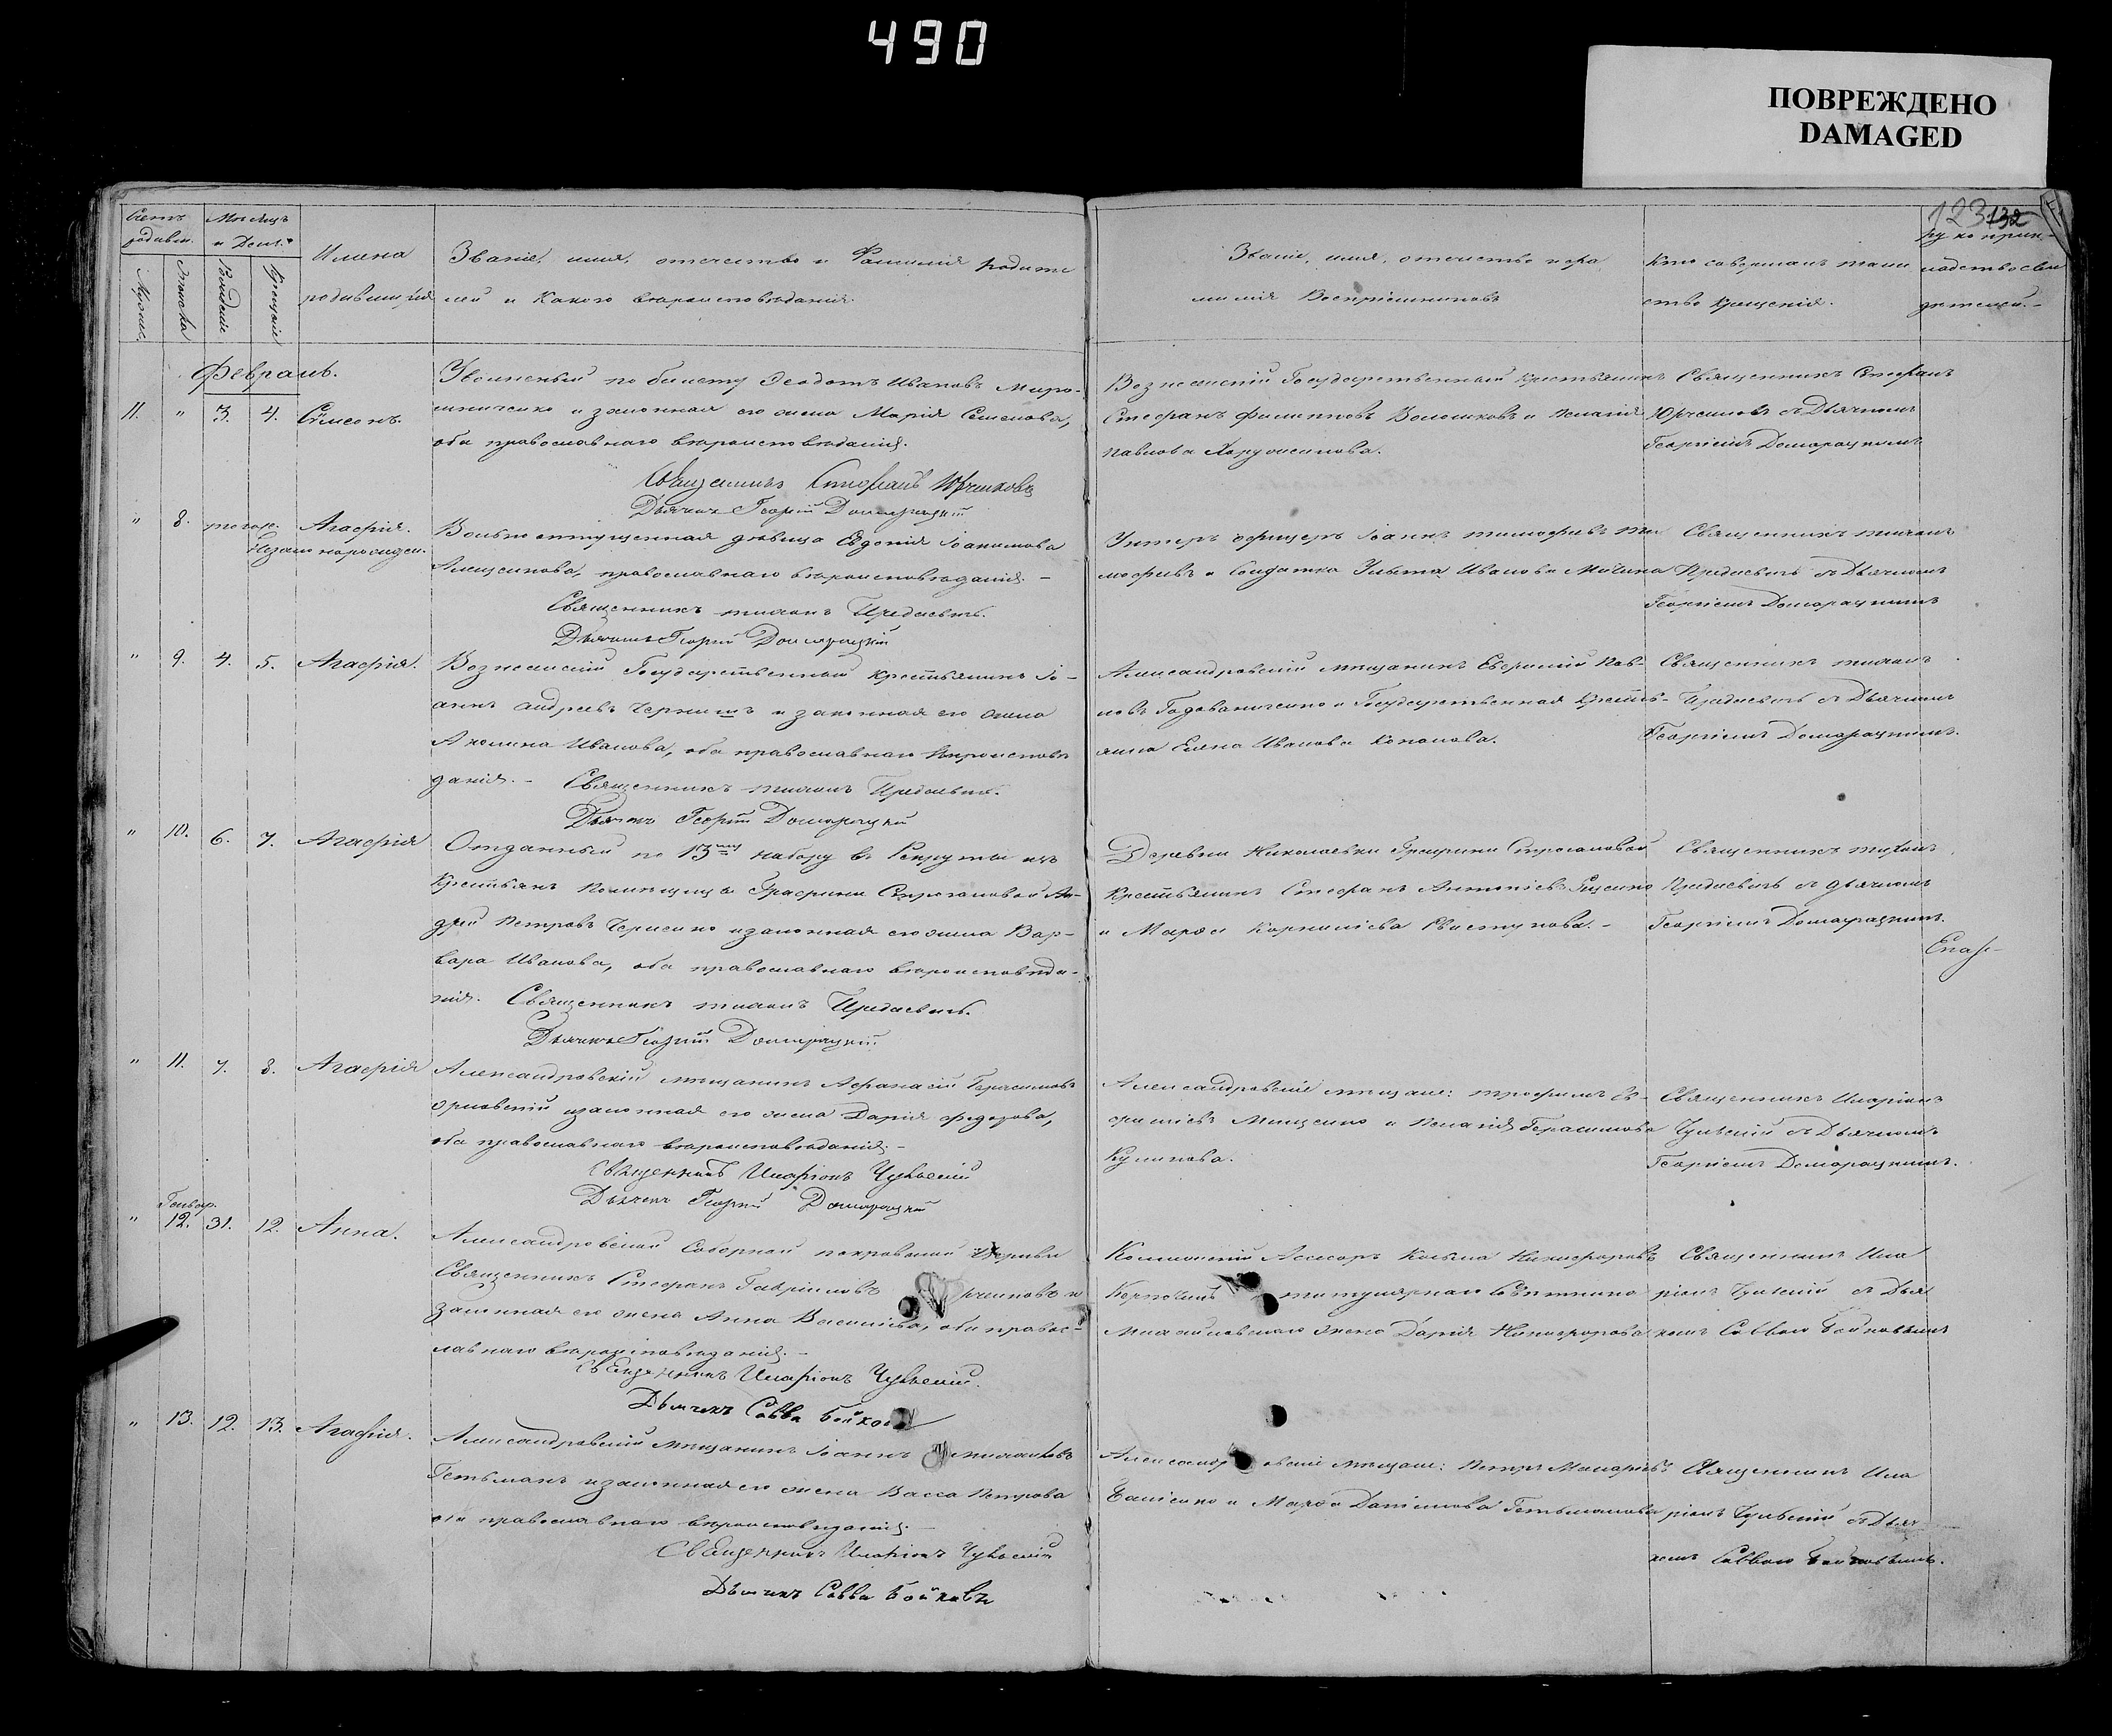 490
ПОВРЕЖДЕНО
DAMAGED
123 132
Счетъ родивш.
Мѣсяцъ и День.
Мужеска
Женска
Рожденіе
Крещеніе
Имена
родившихся
Званіе, имя, отечество и Фамилія родите
лей и какого вѣроисповѣданія.
Званіе, имя, отечество и фа
милія Воспріемниковъ
Кто совершалъ таин
ство крещенія.
руко прик-
ладство сви
дѣтелей.
Февраль.
11. " 3. 4. Сѵмеонъ.
Уволенный по билету Ѳеодотъ Ивановъ Миро-
шниченко и законная его жена Марія Семенова,
оба православнаго вѣроисповѣданія.
Священникъ Стефанъ Юрченковъ
Дьячокъ Георгій Домарацкій
Вознесенскій Государственный крестьянинъ
Стефанъ Филипповъ Волошковъ и Пелагія
Павлова
Священникъ Стефанъ
Юрченковъ съ Дьячкомъ
Георгіемъ Домарацкимъ
" 8. того ж. Агафія.
Незаконорожден.
Вольноотпущенная дѣвица Евдокія Іоакимова
православнаго вѣроисповѣданія. –
Священникъ Тихонъ
Дьячокъ Георгій Домарацкій
Унтеръ офицеръ Іоаннъ Тимофѣевъ Ти
мофѣевъ и Солдатка Улита Иванова
Священникъ Тихонъ
съ Дьячкомъ
Георгіемъ Домарацкимъ
" 9. 4. 5. Агафія.
Вознесенскій Государственный крестьянинъ Іо-
аннъ Андреевъ Чернышъ и законная его жена
Акилина Иванова, оба православнаго вѣроисповѣ
данія. – Священникъ Тихонъ
Дьячокъ Георгій Домарацкій
Александровскій мѣщанинъ Евфимій Пав-
ловъ и Государственная крестъ-
янка Елена Иванова Кононова.
Священникъ Тихонъ
съ Дьячкомъ
Георгіемъ Домарацкимъ.
" 10. 6. 7. Агафія
Отданный по 13му набору въ Рекруты изъ
Крестьянъ помѣщицы Графини Строгановой Ан-
дрей Петровъ и законная его жена Вар-
вара Иванова, оба православнаго вѣроисповѣда-
нія. Священникъ Тихонъ
Дьячокъ Георгій Домарацкій
Деревни Николаевки Графини Строгановой
Крестьянинъ Стефанъ Антоніевъ
и Марѳа Корниліева Свистунова. –
Священникъ Тихонъ
съ Дьячкомъ
Георгіемъ Домарацкимъ.
Епар-
" 11. 7. 8. Агафія
Александровскій мѣщанинъ Афанасій Герасимовъ
Орловскій и законная его жена Дарія Федорова,
оба православнаго вѣроисповѣданія. –
Священникъ Иларіонъ
Дьячокъ Георгій Домарацкій
Александровскіе мѣщане: Трофимъ Ев-
фиміевъ Мищенко и Пелагія Герасимова
Куликова.
Священникъ Иларіонъ
съ Дьячкомъ
Георгіемъ Домарацкимъ.
Генвар.
" 12. 31. 12. Анна.
Александровской Соборной Покровской Церкви
Священникъ Стефанъ Гавріиловъ рченковъ и
законная его жена Анна Василіева, оба правос-
лавнаго вѣроисповѣданія. –
Священникъ Иларіонъ
Дьячокъ Савва Бойковъ
Коллежскій Ассесоръ Косьма Никифоровъ
титулярнаго Совѣтника
жена Дарія Никифорова
Священникъ Ила
ріонъ съ Дья
комъ Саввою Бойковымъ
" 13. 12. 13. Агафія.
Александровскій мѣщанинъ Іоаннъ
Гетьманъ и законная его жена Васса Петрова
оба православнаго вѣроисповѣданія. –
Священникъ Иларіонъ
Дьячокъ Савва Бойковъ
Александровскіе мѣщане: Петръ Макаріевъ
и Марѳа Даніилова Гетьманова
Священникъ Ила
ріонъ съ Дьяч
комъ Саввою Бойковымъ.